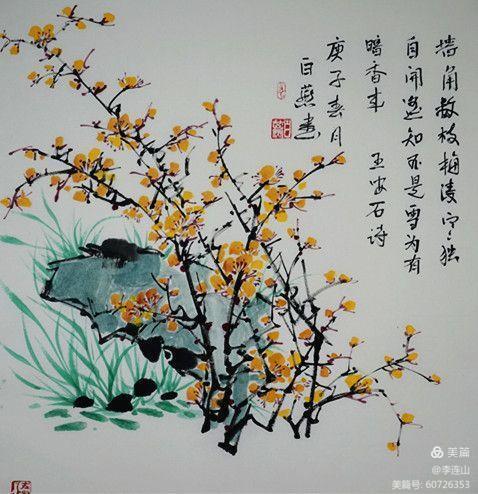 墙角数枝梅凌寒独
自开遥知不是雪为有
暗香来 王安石诗
庚子春月
白燕画
美篇
@李连山
美篇号: 60726353